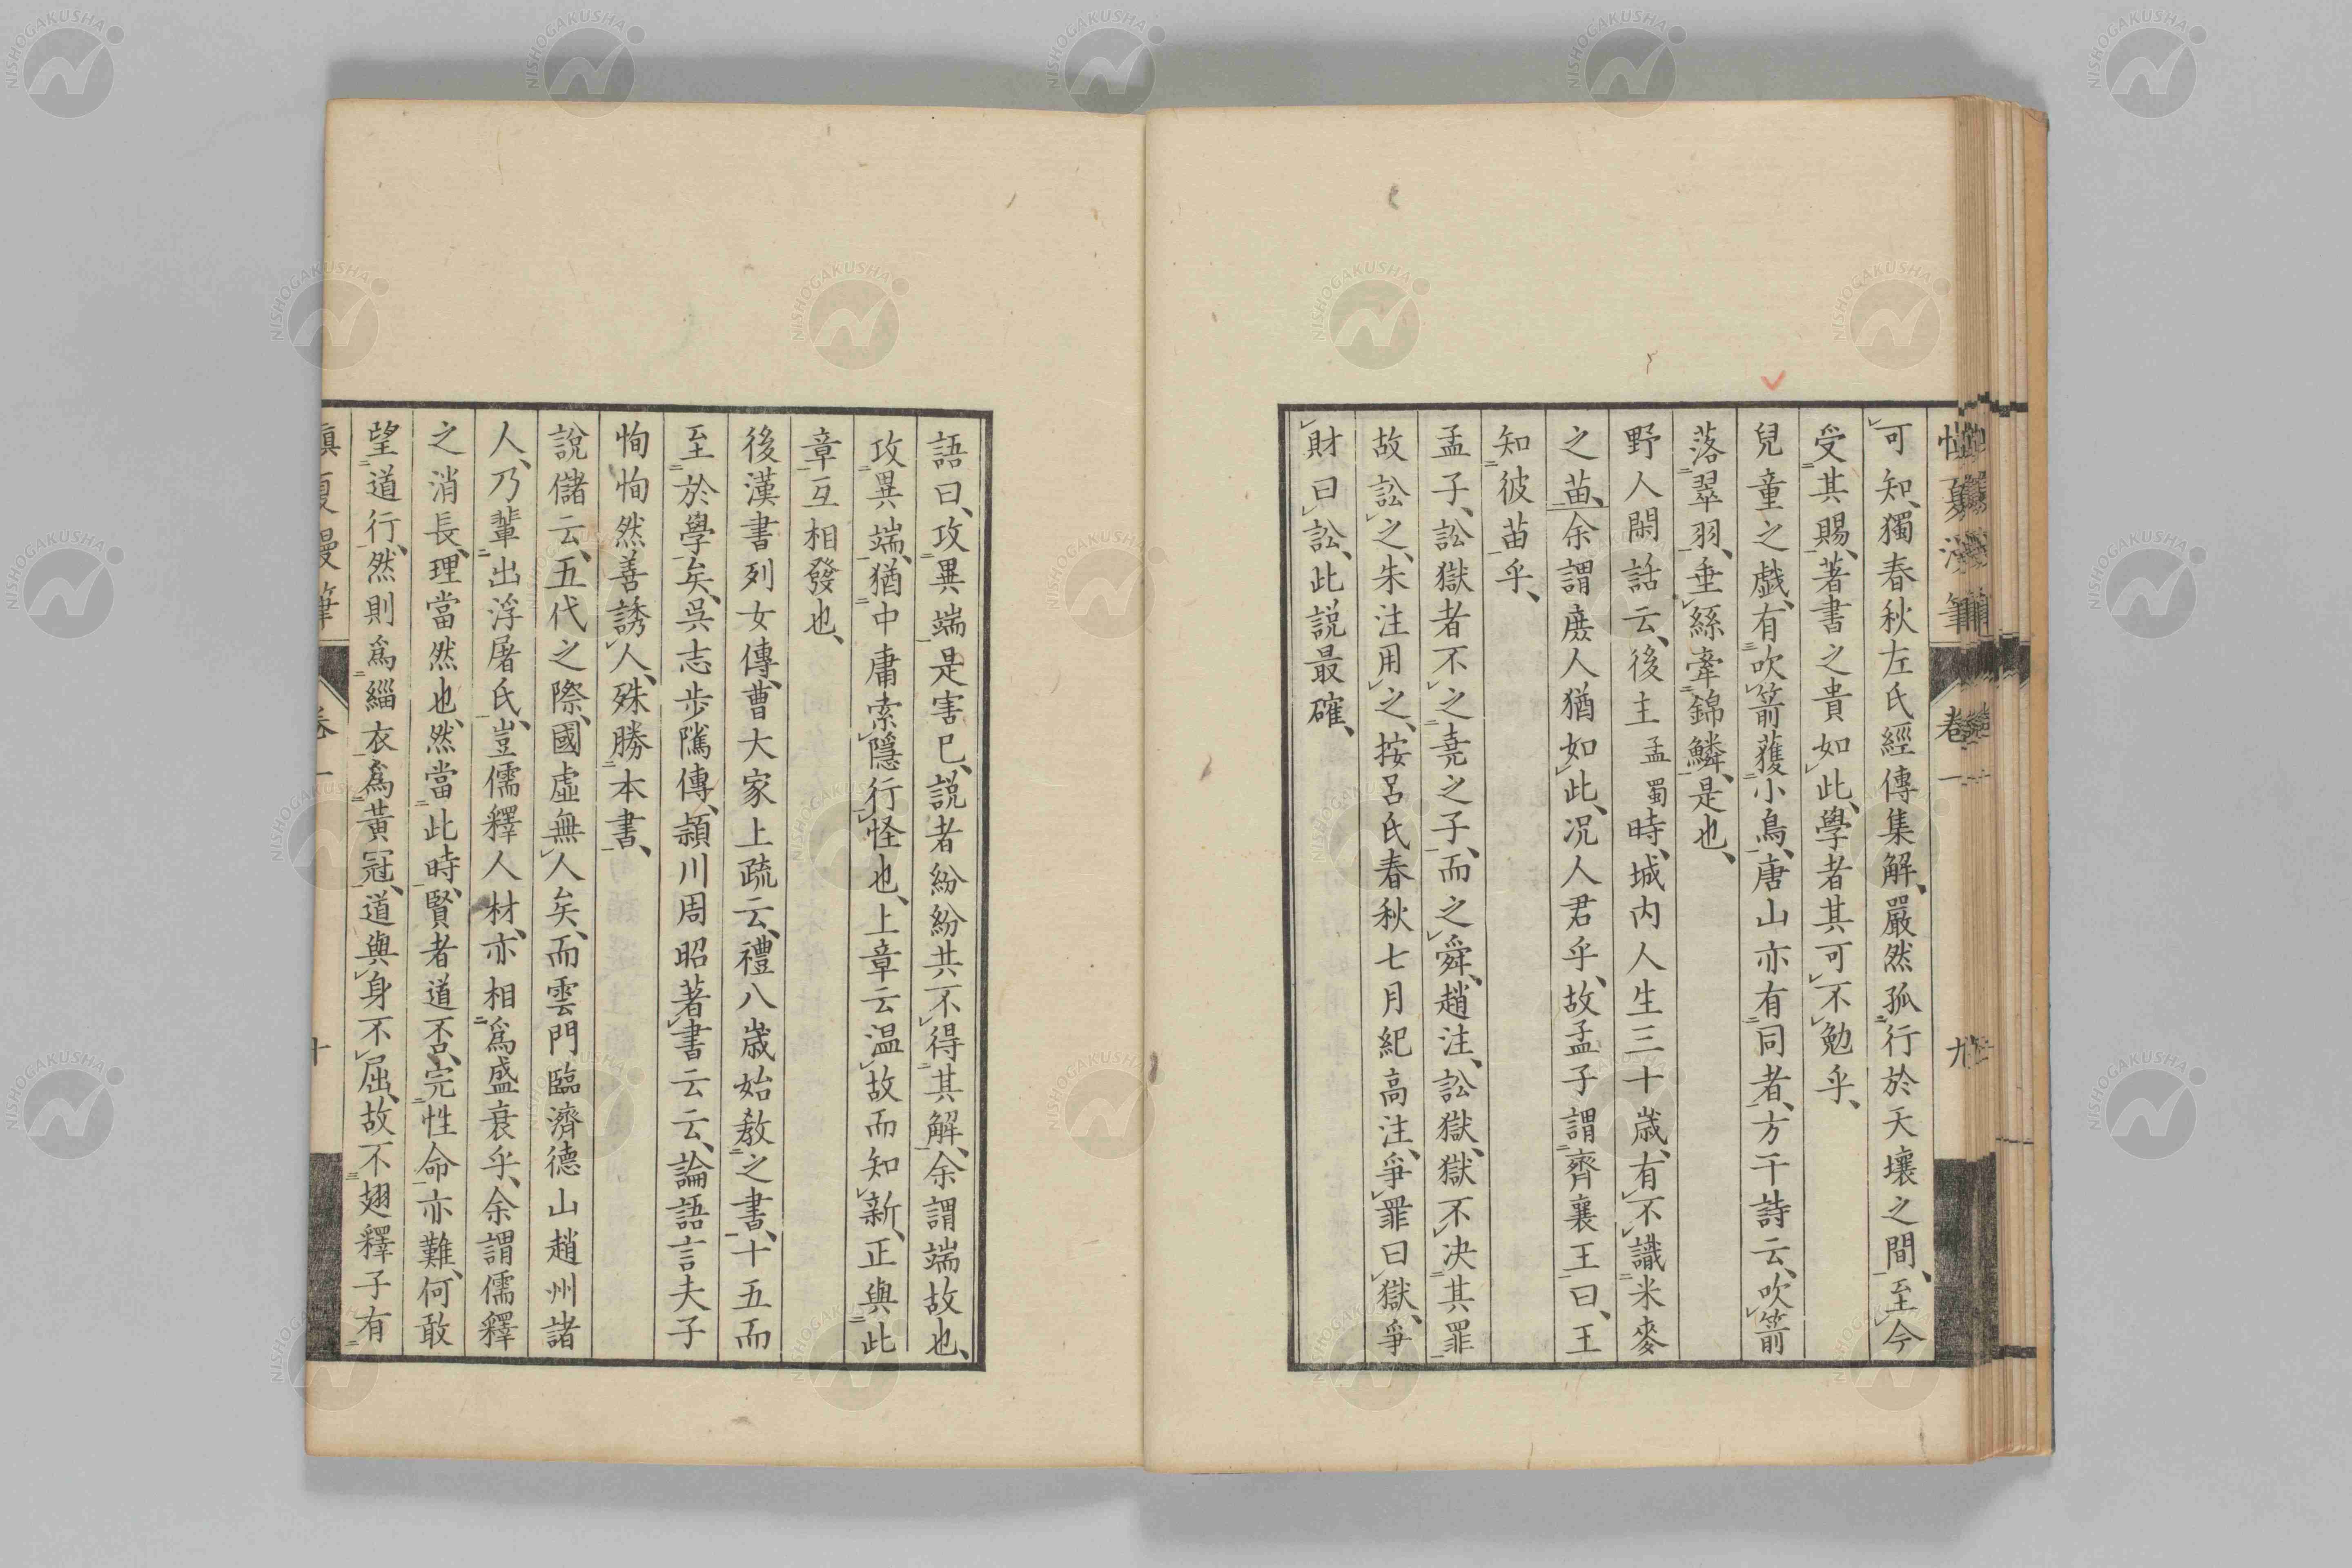 可知、獨春秋左氏經傳集解、嚴然孤行於天壤之間、至今
受其賜、著書之貴如此、學者其可不勉乎、
兒童之戲、有吹箭獲小鳥、唐山亦有同者、方干詩云、吹箭
落翠羽、垂絲牽錦鱗、是也、
野人閑話云、後主孟蜀時、城內人生三十歲、有不識米麥
之苗、余謂庶人猶如此、況人君乎、故孟子謂齊襄王曰、王
知彼苗乎、
孟子、訟獄者不之堯之子、而之舜、趙注、訟獄、獄不決其罪
故訟之、朱注用之、按呂氏春秋七月紀高注、爭罪曰獄、爭
財曰訟、此說最確、
語曰、攻異端是害已、說者紛紛共不得其解、余謂端故也、
攻異端、猶中庸索隱行怪也、上章云溫故而知新、正與此
章互相發也、
後漢書列女傳、曹大家上疏云、禮八歲始教之書、十五而
至於學矣、吳志步隲傳、潁川周昭著書云云、論語言夫子
恂恂然善誘人、殊勝本書、
說儲云、五代之際、國虛無人矣、而雲門臨濟德山趙州諸
人、乃輩出浮屠氏、豈儒釋人材、亦相為盛衰乎、余謂儒釋
之消長、理當然也、然當此時、賢者道否、完性命亦難、何敢
望道行、然則爲緇衣爲黃冠、道與身不屈、故不翅釋子有
卷一
十
卷一
九
NISHOGAKUSHA